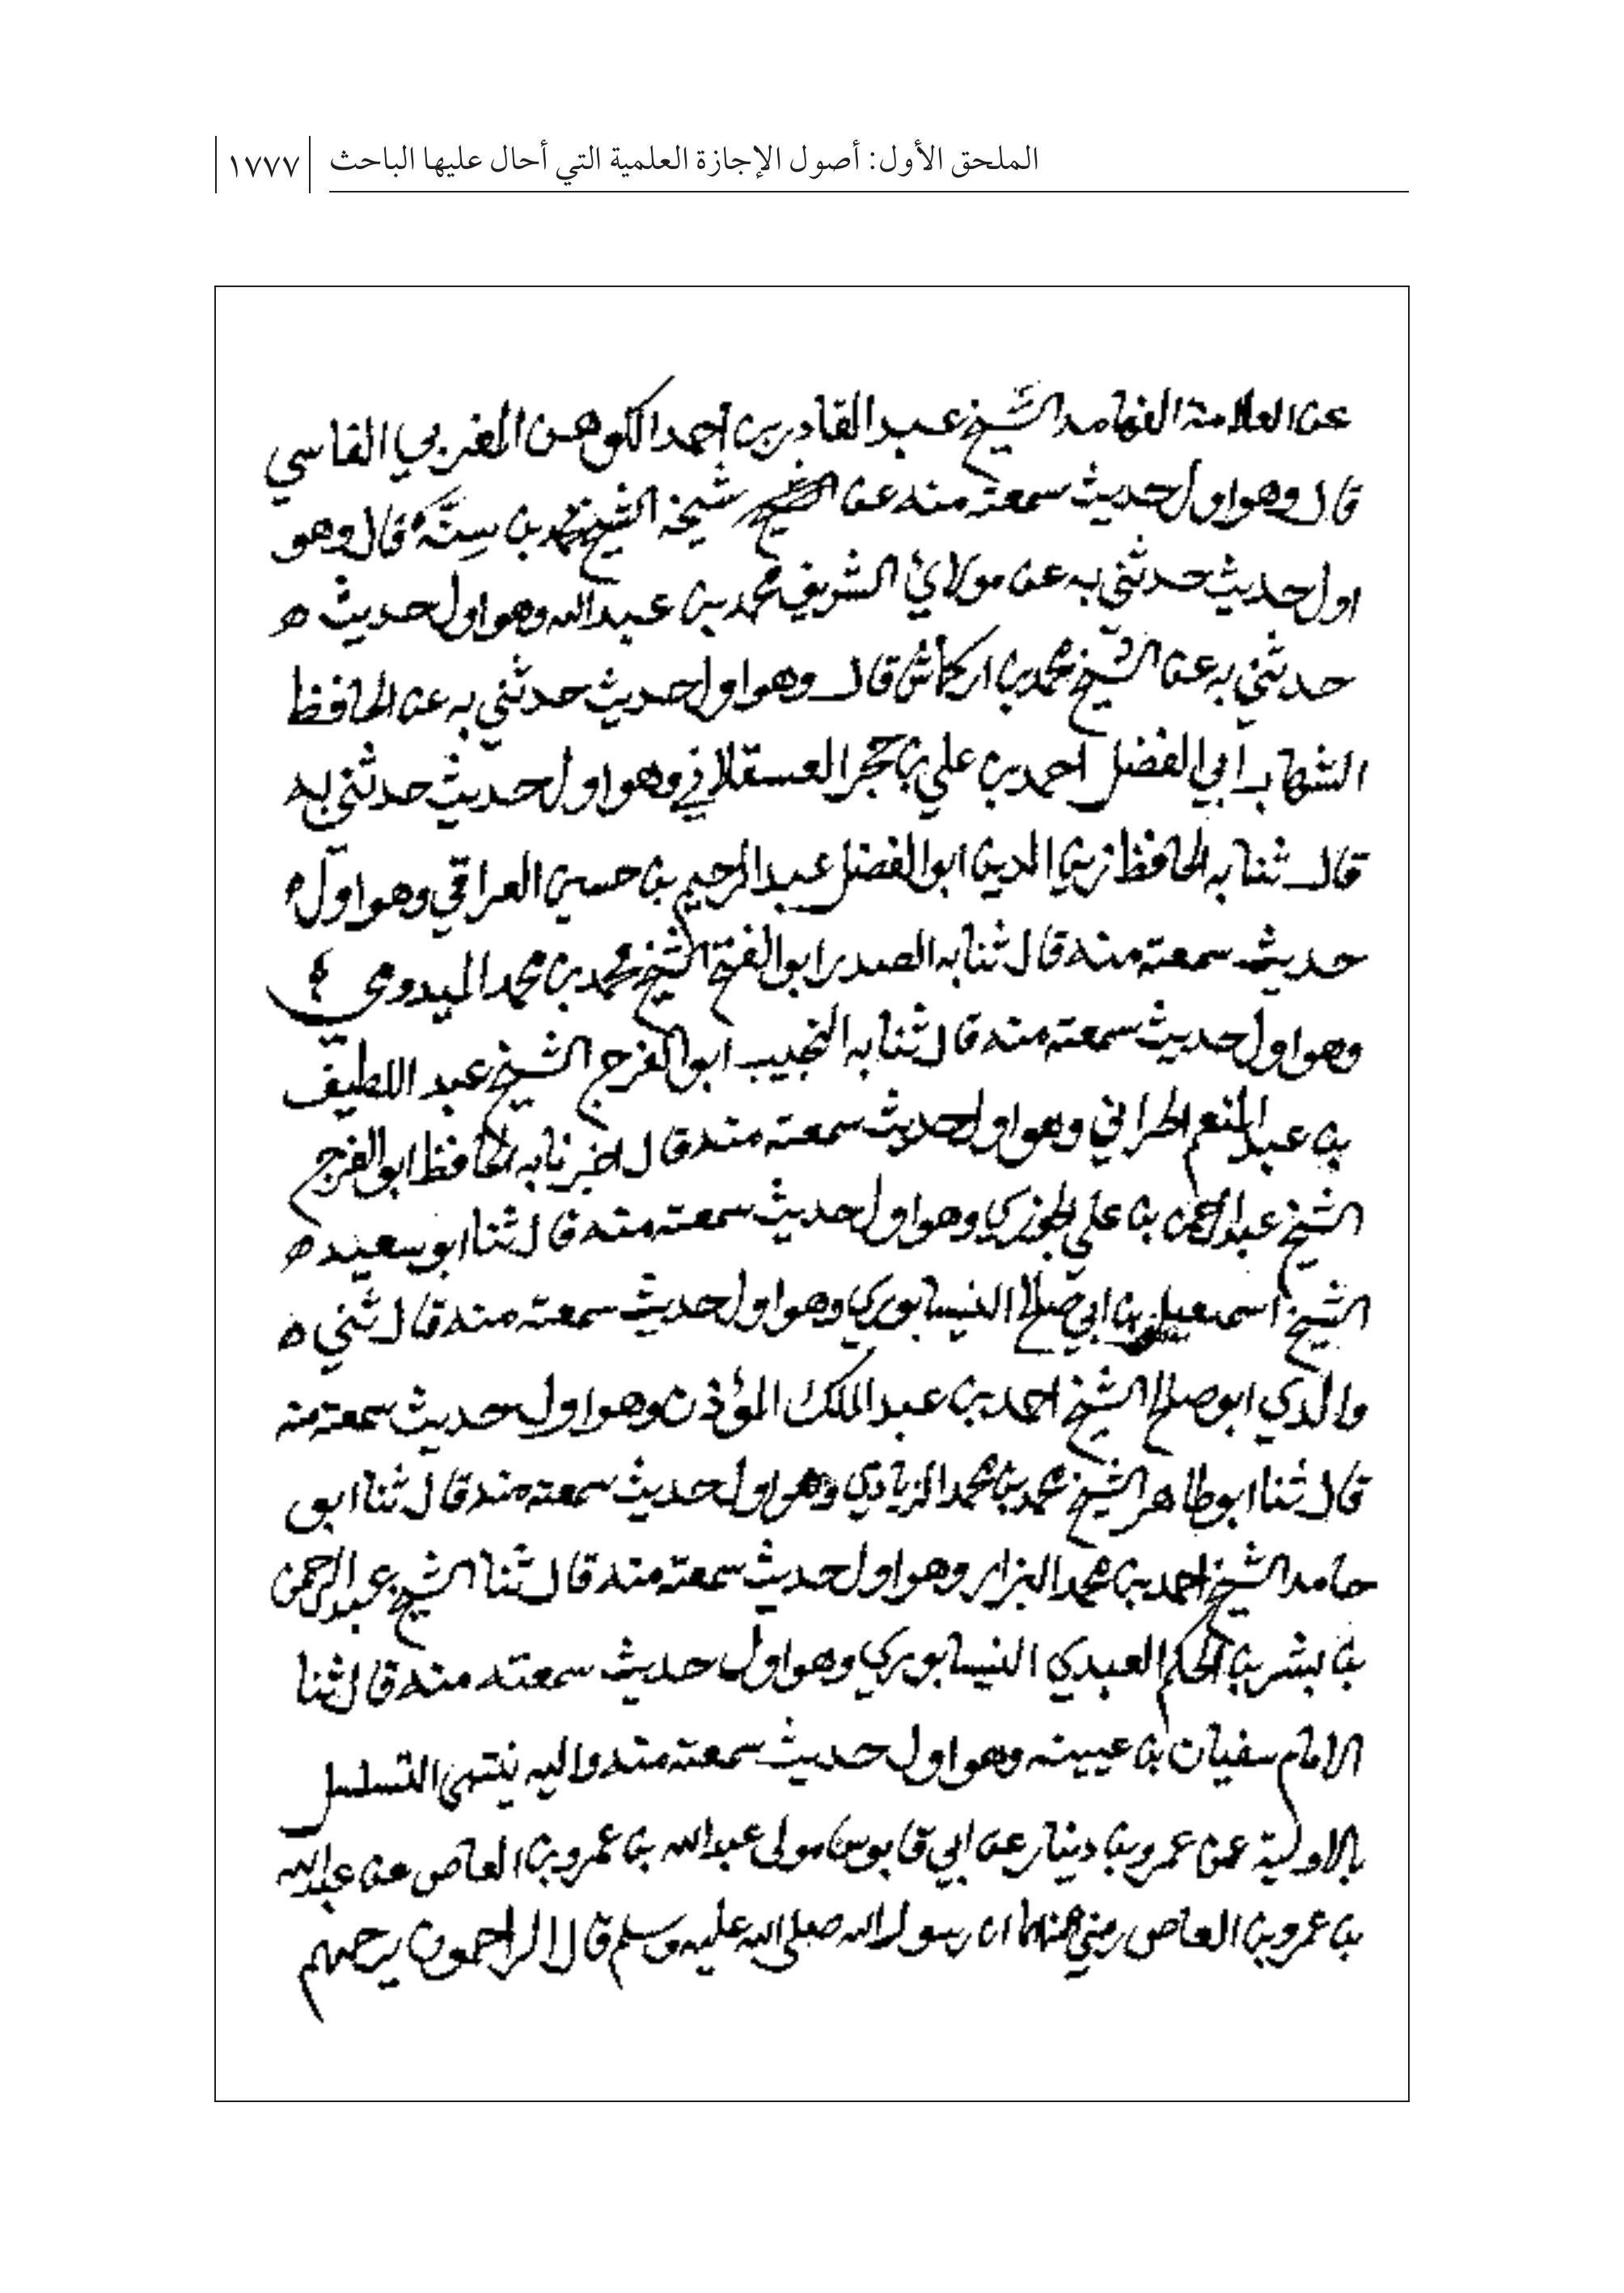 الملحق الأول: أصول الإجازة العلمية التي أحال عليها الباحث ١٧٧٧
عن العلامة الفهامه الشيخ عبد القادر بن أحمد الكوهن المغربي الفاسي
قال وهو اول حديث سمعته منه عن شيخه الشيخ محمد بن سِنَّة قال وهو
اول حديث حدثني به عن مولاي الشريف محمد بن عبد الله وهو اول حديث ه
حدثني به عن الشيخ محمد بن اركماش قال وهو اول حديث حدثني به عن الحافظ
الشهاب أبي الفضل أحمد بن علي بن حجر العسقلاني وهو اول حديث حدثني به
قال ثنا به الحافظ زين الدين ابو الفضل عبد الرحيم بن حسين العراقي وهو اول ه
حديث سمعته منه قال ثنا به الصدر ابو الفتح الشيخ محمد بن محمد الميدومي
وهو اول حديث سمعته منه قال ثنا به النجيب ابو الفرج الشيخ عبد اللطيف
بن عبد المنعم الحراني وهو اول حديث سمعته منه قال اخبرنا به الحافظ ابو الفرج
الشيخ عبد الرحمن بن علي الجوزي وهو اول حديث سمعته منه قال ثنا ابو سعيد ه
الشيخ اسمعيل بن ابي صلح النيسابوري وهو اول حديث سمعته منه قال ثني ه
والدي ابو صلح الشيخ احمد بن عبد الملك المؤذن وهو اول حديث سمعته منه
قال ثنا ابو طاهر الشيخ محمد بن محمد الزيادي وهو اول حديث سمعته منه قال ثنا ابو
حامد الشيخ احمد بن محمد البزار وهو اول حديث سمعته منه قال ثنا الشيخ عبد الرحمن
بن بشر بن الحكم العبدي النيسابوري وهو اول حديث سمعته منه قال ثنا
الامام سفيان بن عيينه وهو اول حديث سمعته منه واليه ينتهى التسلسل
بالاولية عن عمرو بن دينار عن ابي قابوس مولى عبد الله بن عمرو بن العاص عن عبد الله
بن عمرو بن العاص رضي عنهما ان رسول الله صلى الله عليه وسلم قال الراحمون يرحمهم